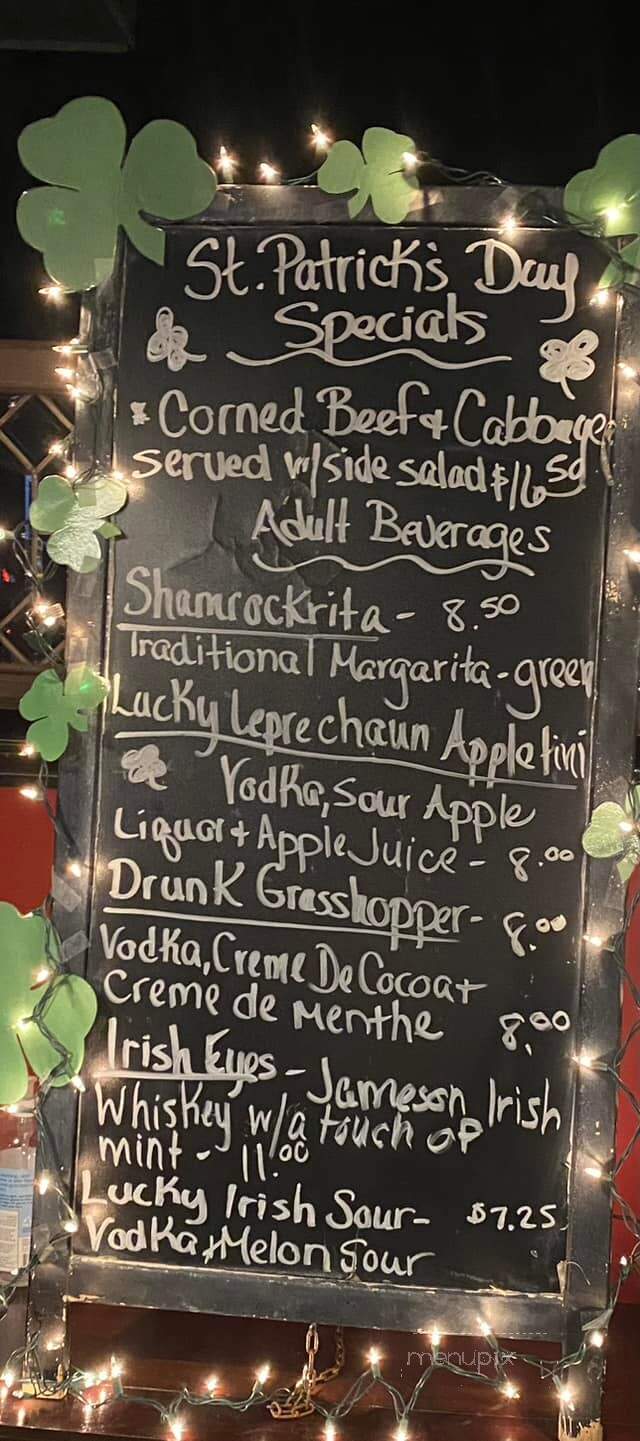 St. Patrick's Day
Specials
* Corned Beef & Cabbage
served w/side salad $16.50
Adult Beverages
Shamrockrita - 8.50
Traditional Margarita - green
Lucky Leprechaun Appletini
Vodka, Sour Apple
Liquor + Apple Juice - 8.00
Drunk Grasshopper - 8.00
Vodka, Creme De Cocoa +
Creme de Menthe 8.00
Irish Eyes - Jameson Irish
Whiskey w/a touch of
mint - 11.00
Lucky Irish Sour - $7.25
Vodka + Melon Sour
menupix